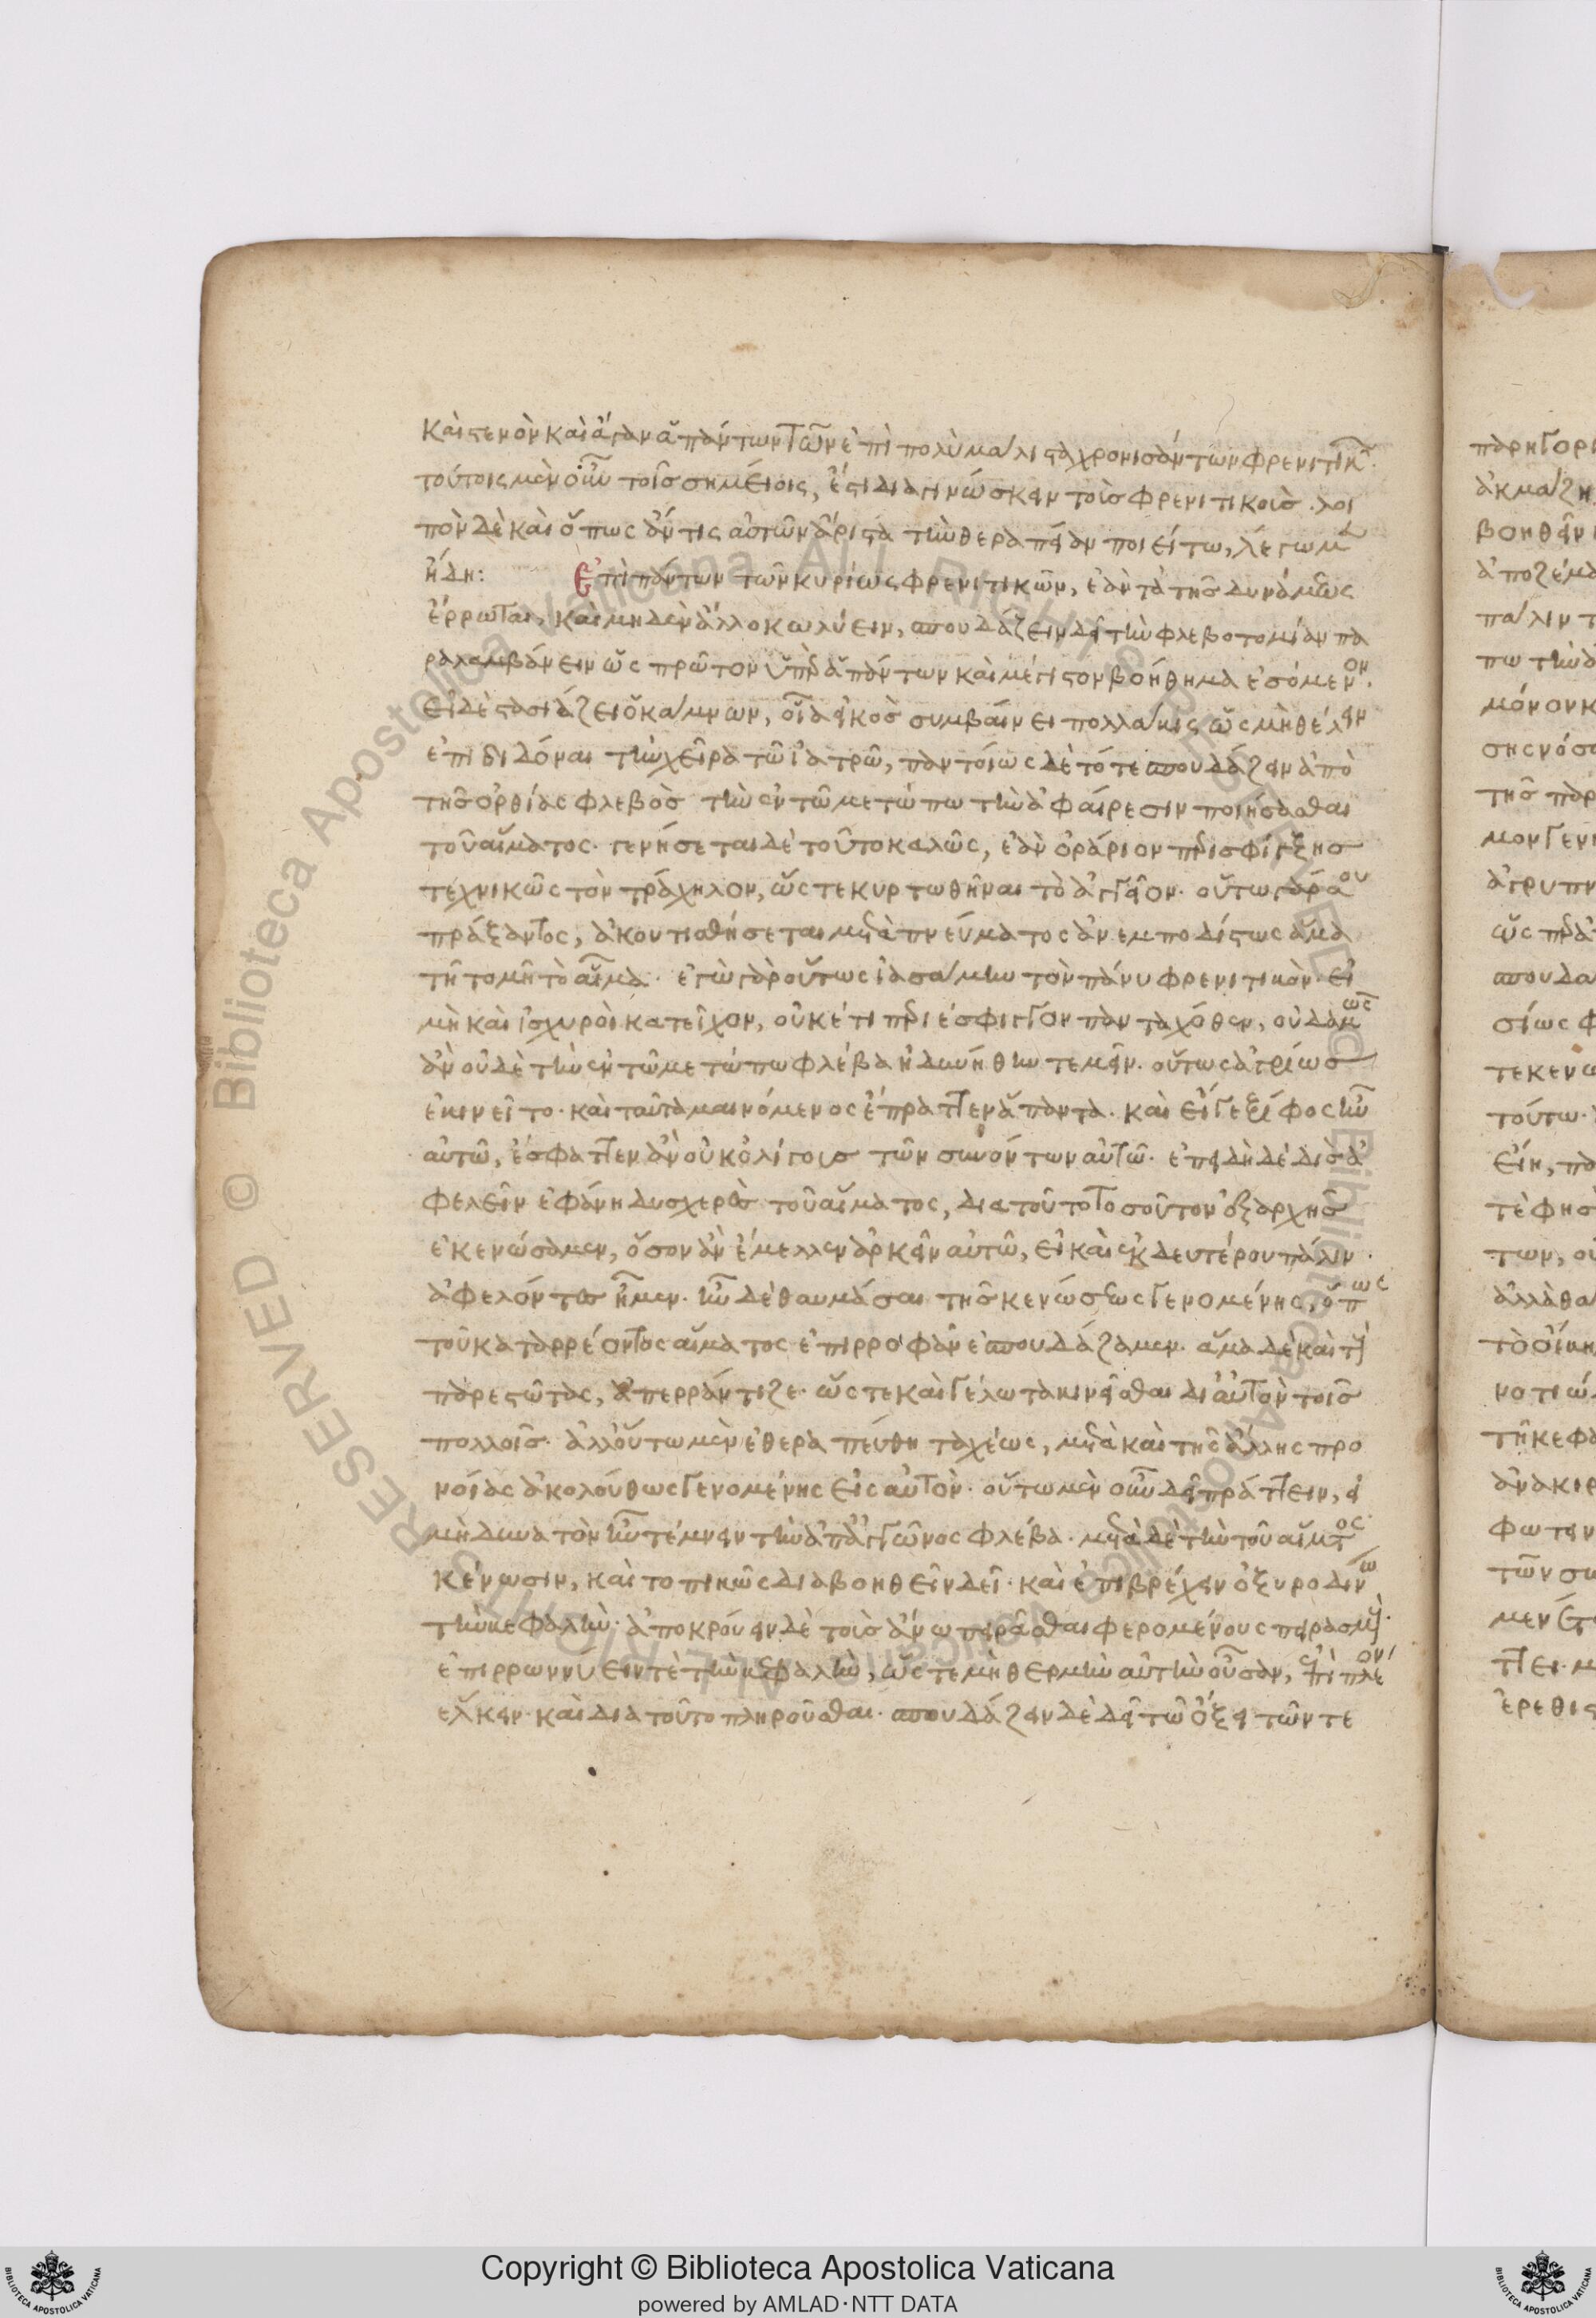 καὶ στενὸν καὶ ἄγαν ἁπάντων τῶν ἐπὶ πολὺ μάλιστα χρονισάντων φρενιτικ
τούτοις μὲν οὖν τοῖς σημείοις, ἔστι διαγινώσκειν τοῖς φρενιτικοῖς. λοι
πὸν δὲ καὶ ὅπως ἄν τις αὐτῶν ἄριστα τὴν θεραπείαν ποιεῖτω, λέγωμ
ἤδη: Ἐπὶ πάντων τῶν κυρίως φρενιτικῶν, ἐὰν τὰ τῆς δυνάμεως
ἔρρωται, καὶ μηδὲν ἄλλο κωλύειν, σπουδάζειν δεῖ τὴν φλεβοτομίαν πα
ραλαμβάνειν ὡς πρῶτον ὑπὲρ ἁπάντων καὶ μέγιστον βοήθημα ἐσόμενον.
εἰ δὲ στασιάζει ὁ κάμνων, οἷα εἰκὸς συμβαίνει πολλάκις ὡς μὴ θέλειν
ἐπιδιδόναι τὴν χεῖρα τῶ ἰατρῶ, παντοίως δὲ τότε σπουδάζειν ἀπὸ
τῆς ὀρθίας φλεβὸς τὴν ἐν τῶ μετώπω τὴν ἀφαίρεσιν ποιήσασθαι
τοῦ αἵματος. γενήσεται δὲ τοῦτο καλῶς, ἐὰν ὀράριον περισφίγξης
τεχνικῶς τὸν τράχηλον, ὥστε κυρτωθῆναι τὸ ἀγγεῖον. οὕτω γάρ σου
πράξαντος, ἀκοντισθήσεται μετὰ πνεύματος ἀνεμποδίστως ἅμα
τῆ τομῆ τὸ αἷμα. ἐγὼ γὰρ οὕτως ἰασάμην τὸν πάνυ φρενιτικόν. εἰ
μὴ καὶ ἰσχυροὶ κατεῖχον, οὐκέτι περιέσφιγγον πανταχόθεν, οὐδαμῶς
ἂν οὐδὲ τὴν ἐν τῶ μετώπω φλέβα ἠδυνήθην τεμεῖν. οὕτως ἀγρίως
ἐκινεῖτο. καὶ ταῦτα μαινόμενος ἔπραττεν ἅπαντα. καὶ εἴγε ξίφος ἦν
αὐτῶ, ἔσφαττεν ἂν οὐκ ὀλίγοις τῶν συνόντων αὐτῶ. ἐπειδὴ δὲ δὶς ἀ
φελεῖν ἐφάνη δυσχερὲς τοῦ αἵματος, δια τοῦτο τοσοῦτον ἐξαρχῆς
ἐκενώσαμεν, ὅσον ἂν ἔμελλεν ἀρκεῖν αὐτῶ, εἰ καὶ ἐκ δευτέρου πάλιν.
ἀφελόντες ἦμεν. ἦν δὲ θαυμάσαι τῆς κενώσεως γενομένης, ὅπως
τοῦ καταρρέοντος αἵματος ἐπιρροφᾶν ἐσπουδάζαμεν. ἅμα δὲ καὶ τοὺς
παρεστῶτας, περρἀντιζε. ὥστε καὶ γέλωτα κινεῖσθαι δι' αὐτὸν τοῖς
πολλοῖς. ἀλλ' οὕτω μὲν ἐθεραπεύθη ταχέως, μετὰ καὶ τῆς ἄλλης προ
νοίας ἀκολούθως γενομένης εἰς αὐτὸν. οὕτω μὲν οὖν δεῖ πράττειν, εἰ
μὴ δυνατὸν ἦν τέμνειν τὴν ἀπ' ἀγκῶνος φλέβα. μετὰ δὲ τὴν τοῦ αἵματος
κένωσιν, καὶ τοπικῶς διαβοηθεῖν δεῖ. καὶ ἐπιβρέχειν ὀξυροδίνω
τὴν κεφαλήν. ἀποκρούειν δὲ τοῖς ἄνω πειρᾶσθαι φερομένους
ἐπιρρωννύειν τὲ τὴν κεφαλὴν, ὥστε μὴ θερμὴν αὐτὴν οὖσαν, ἐπὶ πλέον
ἕλκειν. καὶ δια τοῦτο πληροῦσθαι. σπουδάζειν δὲ δεῖ τῶ ὄξει τῶν τε
Copyright © Biblioteca Apostolica Vaticana
powered by AMLAD·NTT DATA